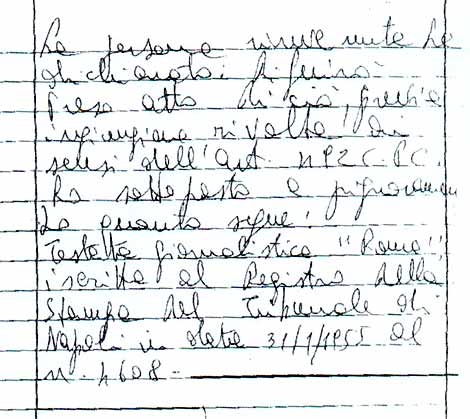 La persona rinvenuta ha
dichiarato: 
Preso atto di ciò, previa
ingiunzione rivolta ai
sensi dell'art. 492 C.PC.
Ho sottoposto a pignoramen
to quanto segue:
Testata giornalistica "Roma",
iscritta al Registro della
Stampa del Tribunale di
Napoli in data 31/1/1955 al
n. 4608.